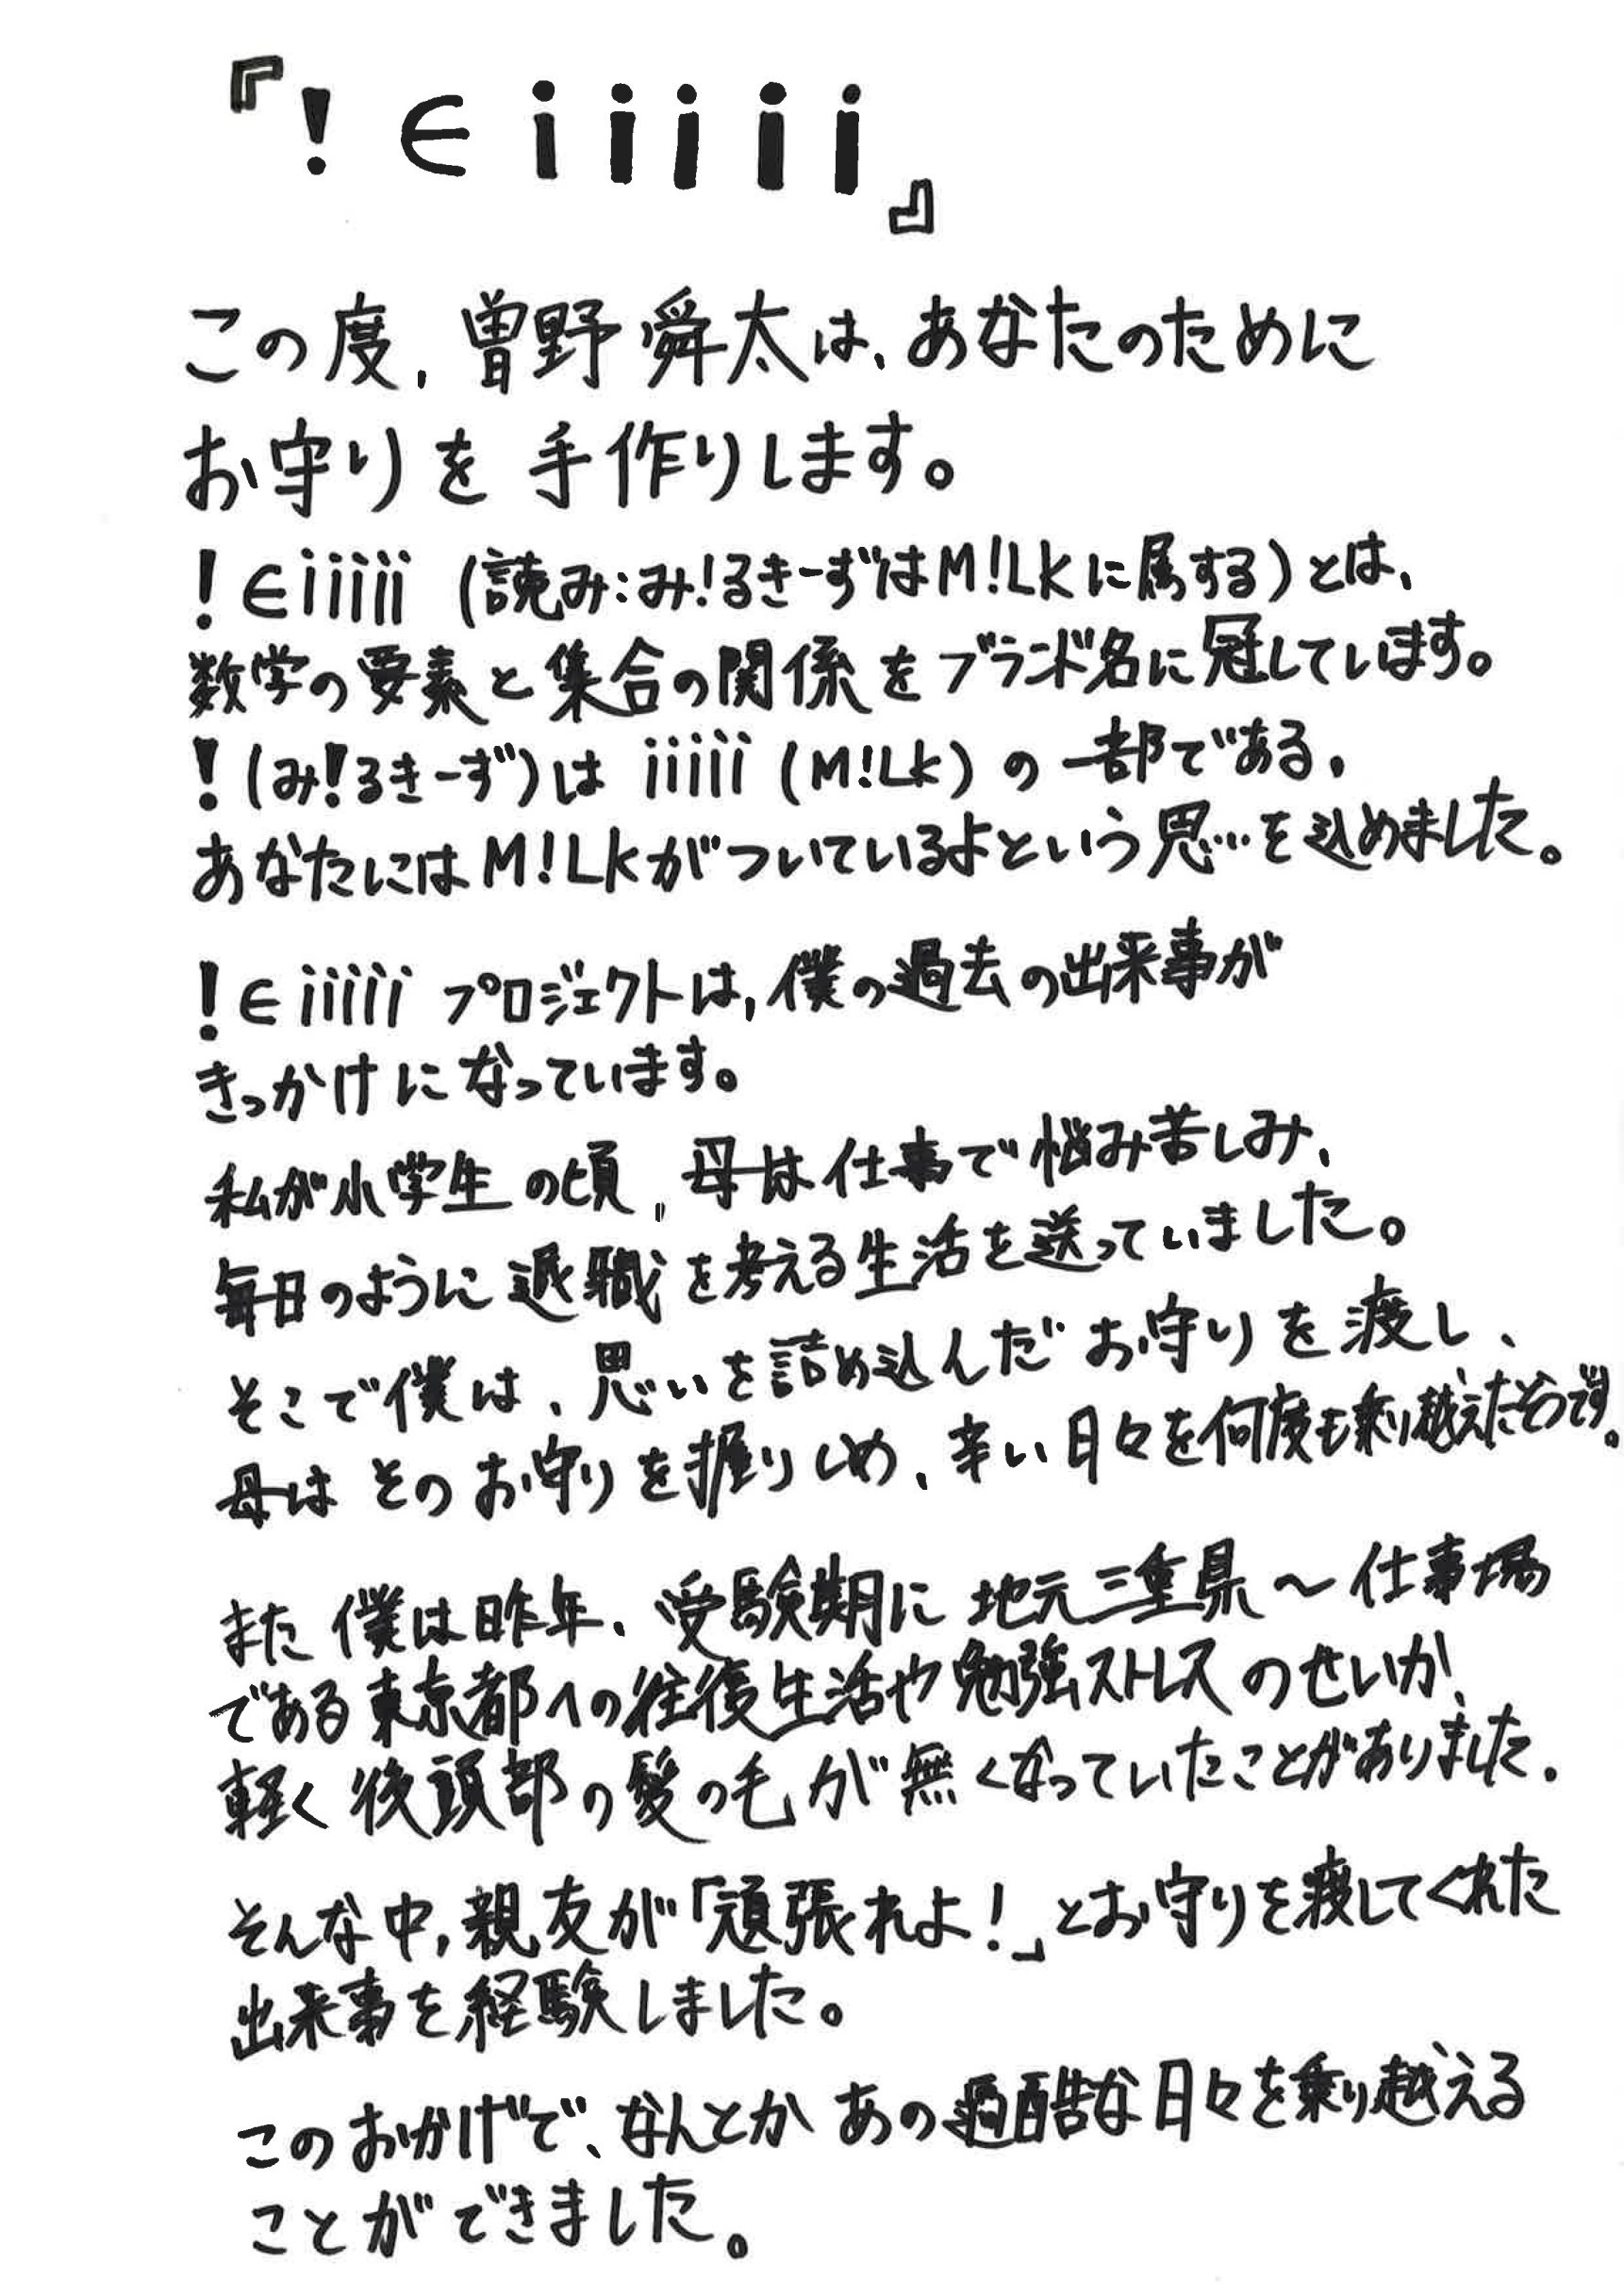 『！∈ｉｉｉｉｉ』
この度，曽野舜太は、あなたのために
お守りを手作りします。
！∈ｉｉｉｉｉ（読み：み！るきーずはM!LKに属する）とは、
数学の要素と集合の関係をブランド名に冠しています。
！（み！るきーず）はｉｉｉｉｉ（M!Lk）の一部である、
あなたにはM!LKがついているよという思いを込めました。
！∈ｉｉｉｉｉプロジェクトは，僕の過去の出来事が
きっかけになっています。
私が小学生の頃，母は仕事で悩み苦しみ、
毎日のように退職を考える生活を送っていました。
そこで僕は、思いを詰め込んだお守りを渡し、
母はそのお守りを握りしめ、辛い日々を何度も乗り越えたそうです。
また僕は昨年、受験期に地元三重県～仕事場
である東京都への往復生活や勉強ストレスのせいか、
軽く後頭部の髪の毛が無くなっていたことがありました。
そんな中，親友が「頑張れよ！」とお守りを渡してくれた
出来事を経験しました。
このおかげで、なんとかあの過酷な日々を乗り越える
ことができました。